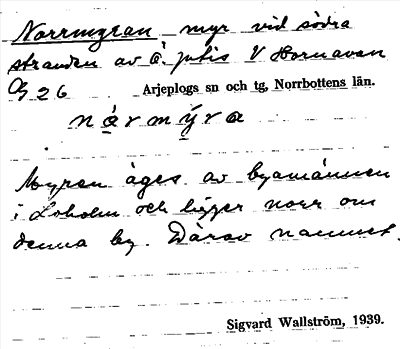 Norrmyran myr vid södra
stranden av Ö. jutis V Hornavan
G 26 Arjeplogs sn och tg, Norrbottens län.
nårmýra
Myren äges av byamännen
i Loholm och ligger norr om
denna by. Därav namnet.
Sigvard Wallström, 1939.